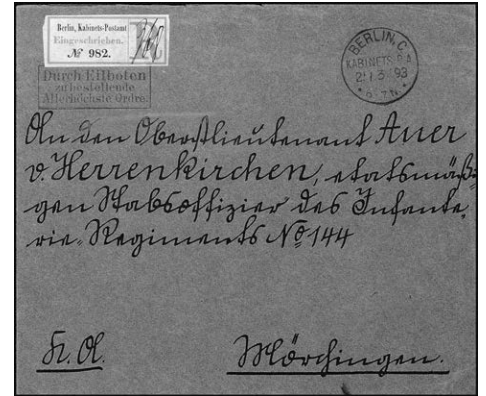 Berlin, Kabinets-Postamt
Eingeschrieben.
№ 982.
Durch Eilboten
zu bestellende
Allerhöchste Ordre.
BERLIN, C.
KABINETS-P.A.
93
An den Oberstlieutenant Auer
v. Herrenkirchen, etatsmäßi-
gen Stabsoffizier des Infante-
rie-Regiments No 144
K. A.
Mörchingen.